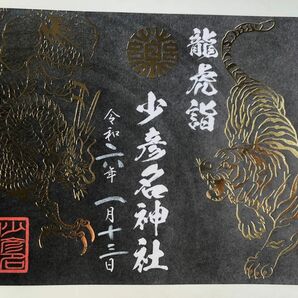 龍虎詣
少彦名神社
令和六年一月十三日
少彦名